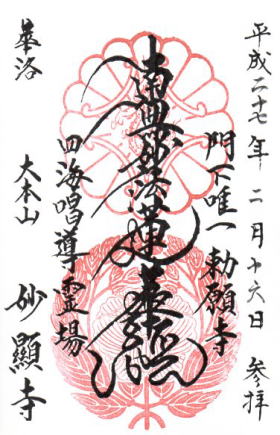 平成二十七年 二月十六日 参拝
門下唯一 勅願寺
南無妙法蓮華経
四海唱導霊場
華洛 大本山 妙顯寺